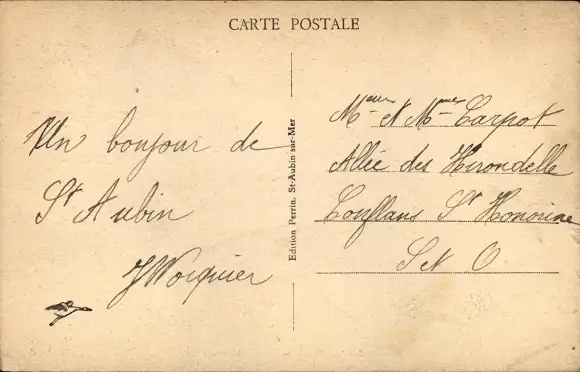 CARTE POSTALE
Un bonjour de
St Aubin
Edition Perrin, St-Aubin-sur-Mer
Meur et Mme Carpot
Allée des Hirondelle
Conflans St Honorine
S et O